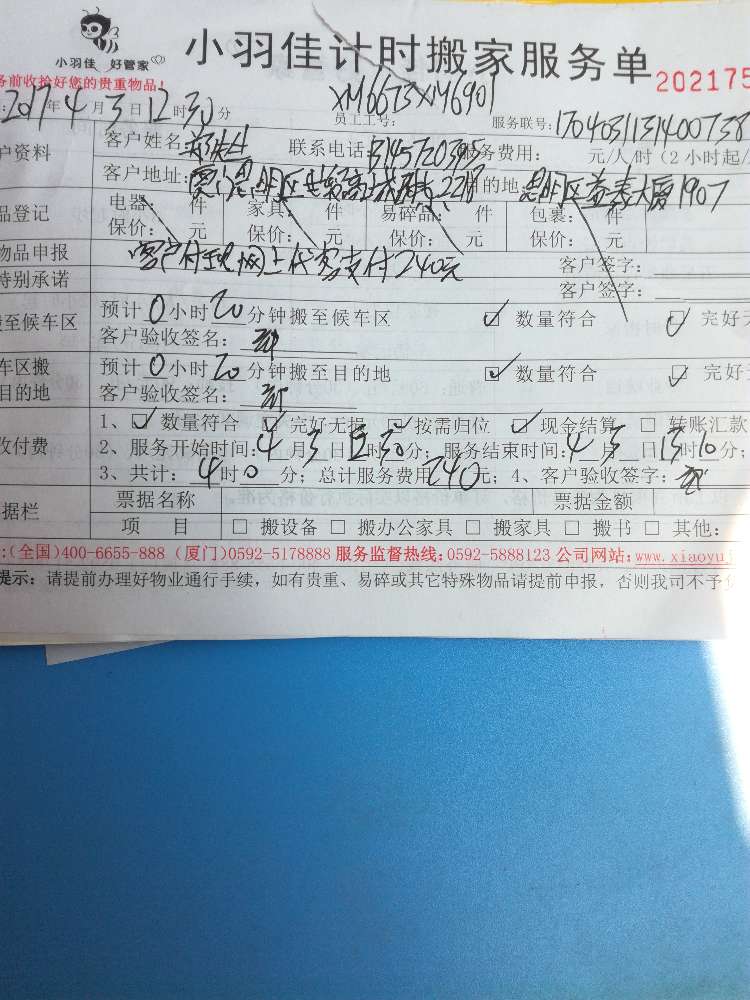 小羽佳 好管家
小羽佳计时搬家服务单 202175
务前收拾好您的贵重物品!
2017年4月3日12时30分 员工工号: XM6673XM6901 服务联号: 1704031131400738
户资料 客户姓名: 联系电话: 服务费用: 元/人/时(2小时起/
客户地址: 2218 目的地: 益泰大厦1907
品登记 电器: 件 家具: 件 易碎品: 件 包裹: 件
保价: 元 保价: 元 保价: 元 保价: 元
物品申报 客户付现网上代客支付240元 客户签字:
特别承诺 客户签字:
搬至候车区 预计0小时20分钟搬至候车区 ☑ 数量符合 ☑ 完好无
客户验收签名:
车区搬 预计0小时20分钟搬至目的地 ☑ 数量符合 ☑ 完好无
目的地 客户验收签名:
收付费 1、☑ 数量符合 ☑ 完好无损 ☑ 按需归位 ☑ 现金结算 □ 转账汇款
2、服务开始时间:4月3日12时30分; 服务结束时间:4月3日15时10分;
3、共计:4时0分; 总计服务费用240元; 4、客户验收签字:
据栏 票据名称 票据金额
项 目 □ 搬设备 □ 搬办公家具 □ 搬家具 □ 搬书 □ 其他:
:(全国)400-6655-888 (厦门)0592-5178888 服务监督热线:0592-5888123 公司网站:www.xiaoyu
提示: 请提前办理好物业通行手续,如有贵重、易碎或其它特殊物品请提前申报,否则我司不予